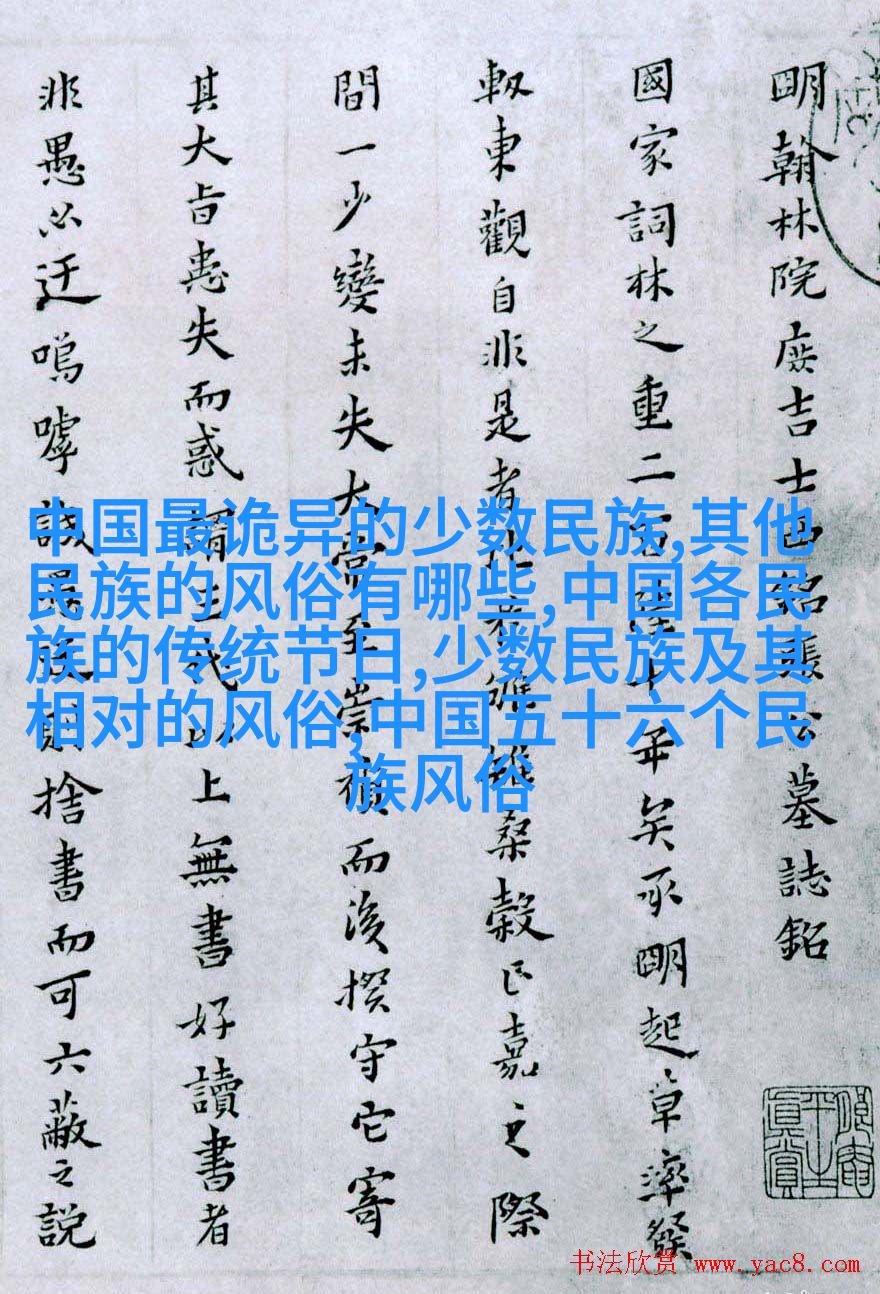 明翰林院庶吉士公墓誌銘
國家詞林之重二百年矣承明起草率發
軔東觀自非是者桑穀之際
間一少變未失大至崇禎而後揆守它寄
其大旨患失而惑謂三代以上無書好讀書者
非愚必迂嗚嘑誠愚則捨書而可六蔽之説
中国最诡异的少数民族,其他
民族的风俗有哪些,中国各民
族的传统节日,少数民族及其
相对的风俗,中国五十六个民
族风俗
书法欣赏 www.yac8.com